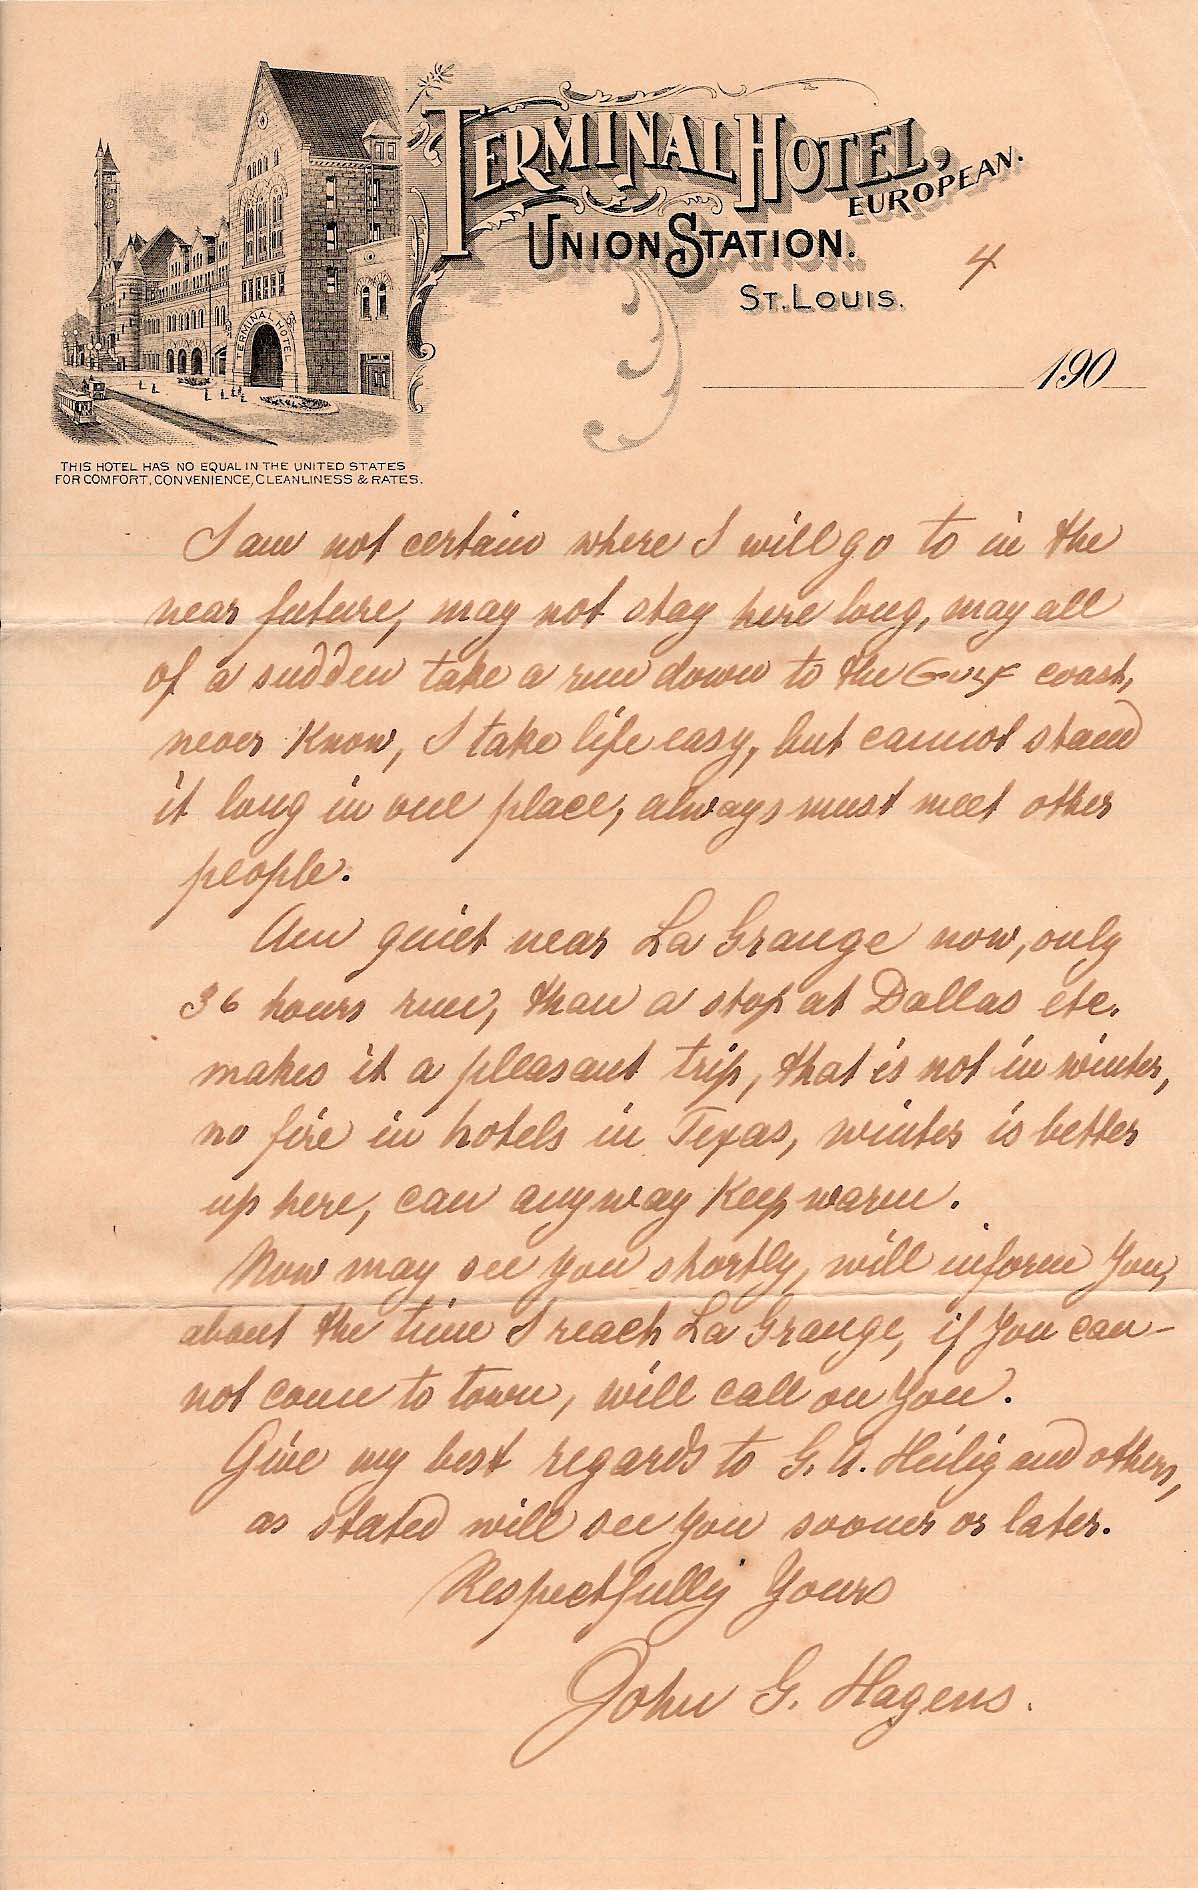 TERMINAL HOTEL,
EUROPEAN.
UNION STATION.
ST. LOUIS.
4
190
TERMINAL HOTEL
THIS HOTEL HAS NO EQUAL IN THE UNITED STATES
FOR COMFORT, CONVENIENCE, CLEANLINESS & RATES.
I am not certain where I will go to in the
near future, may not stay here long, may all
of a sudden take a run down to the Gulf coast,
never know, I take life easy, but cannot stand
it long in one place, always must meet other
people.
Am quiet near La Grange now, only
36 hours run, than a stop at Dallas etc.
makes it a pleasant trip, that is not in winter,
no fire in hotels in Texas, winter is better
up here, can anyway keep warm.
Now may see you shortly, will inform You,
about the time I reach La Grange, if You can-
not come to town, will call on You.
Give my best regards to G. A. Heilig and others,
as stated will see you sooner or later.
Respectfully Yours
John G. Hagens.